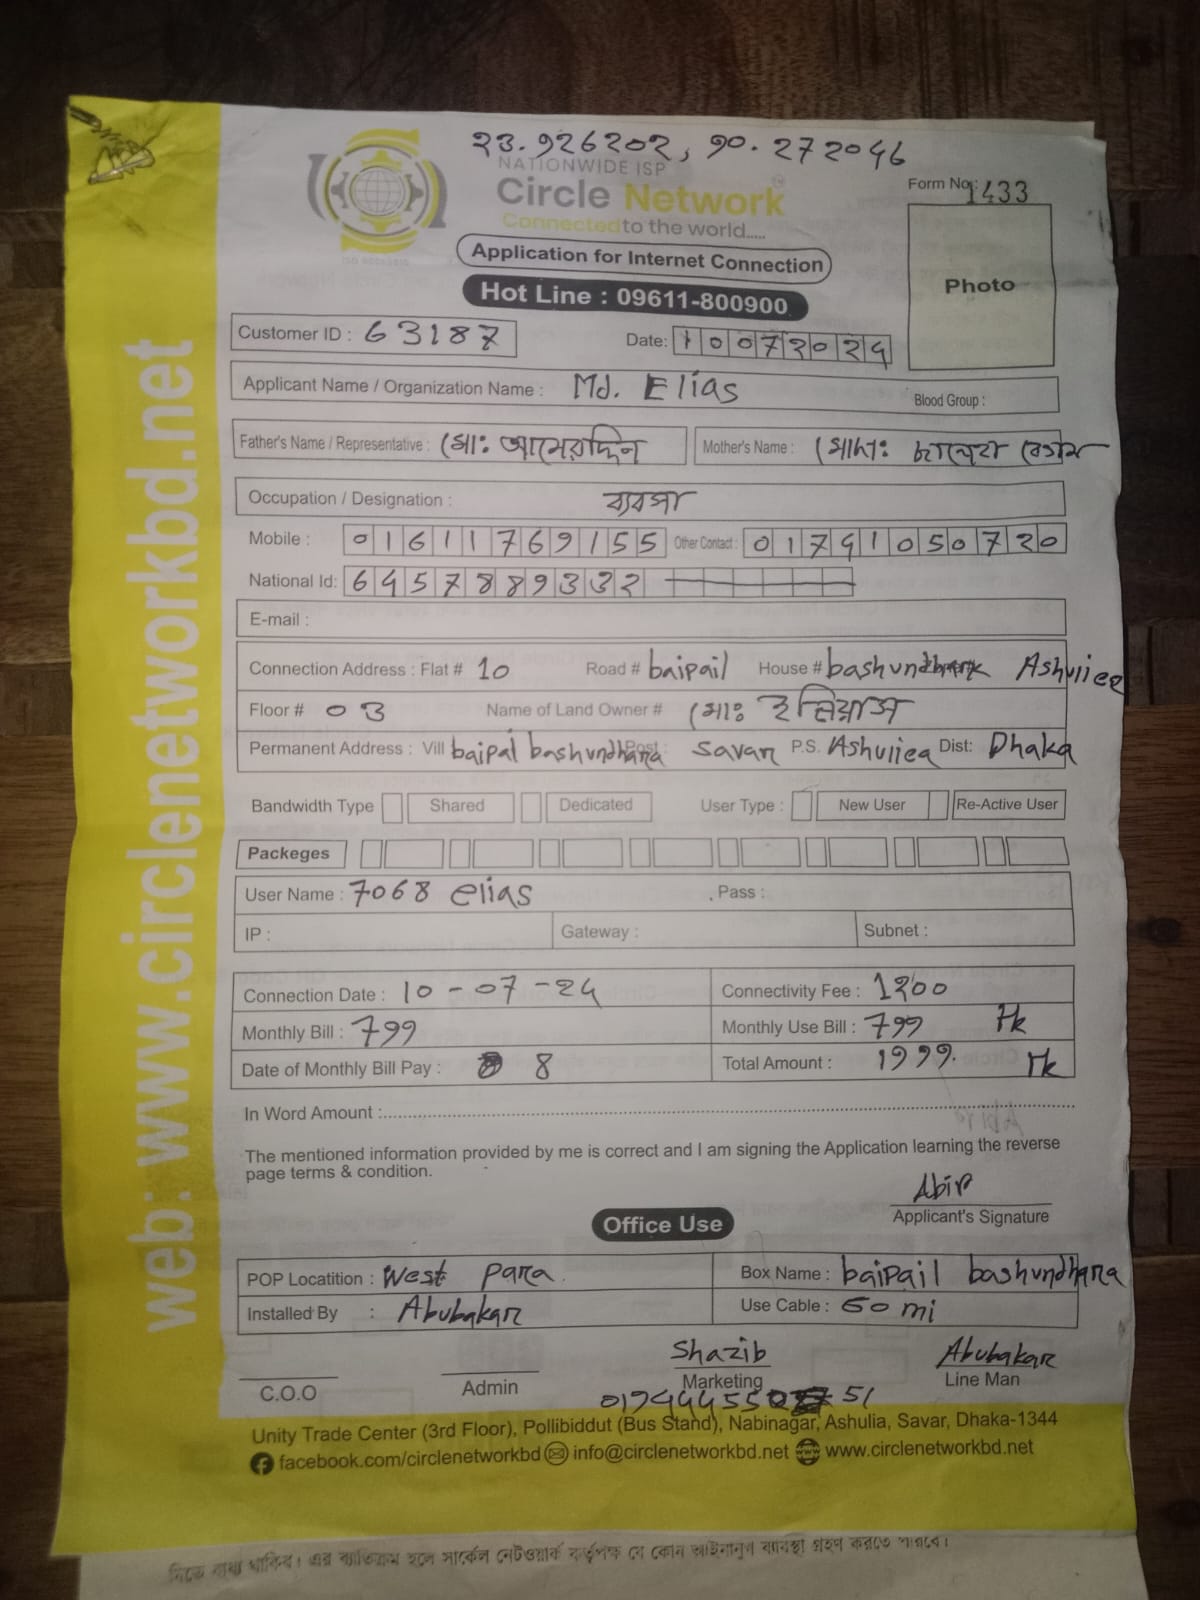 23.926202, 90.272046
NATIONWIDE ISP
Circle Network
Connected to the world.....
Form No.: 1433
Application for Internet Connection
Photo
Hot Line : 09611-800900
Customer ID : 63187
Date: 10072024
Applicant Name / Organization Name : Md. Elias
Blood Group :
Father's Name / Representative : মোঃ আমেরদ্দিন
Mother's Name : মোছাঃ বেগম
Occupation / Designation : ব্যবসা
Mobile : 01611769155 Other Contact : 01741050720
National Id: 6457889332
E-mail :
Connection Address : Flat # 10 Road # baipail House # Ashuliea
Floor # 03 Name of Land Owner # মোঃ ইলিয়াস
Permanent Address : Vill baipal bashundhara Post : savar P.S. Ashuliea Dist: Dhaka
Bandwidth Type Shared Dedicated User Type : New User Re-Active User
Packeges
User Name : 7068 elias Pass :
IP : Gateway : Subnet :
Connection Date : 10-07-24 Connectivity Fee : 1200
Monthly Bill : 799 Monthly Use Bill : 799 Tk
Date of Monthly Bill Pay : 8 Total Amount : 1999. Tk
In Word Amount :
The mentioned information provided by me is correct and I am signing the Application learning the reverse
page terms & condition.
Abir
Applicant's Signature
Office Use
POP Locatition : West para Box Name : baipail bashundhara
Installed By : Abubakar Use Cable : 60 mi
Shazib Abubakar
C.O.O Admin Marketing Line Man
Unity Trade Center (3rd Floor), Pollibiddut (Bus Stand), Nabinagar, Ashulia, Savar, Dhaka-1344
facebook.com/circlenetworkbd info@circlenetworkbd.net www.circlenetworkbd.net
web: www.circlenetworkbd.net
দিতে বাধ্য থাকিব। এর ব্যতিক্রম হলে সার্কেল নেটওয়ার্ক কর্তৃপক্ষ যে কোন আইনানুগ ব্যবস্থা গ্রহণ করতে পারবে।